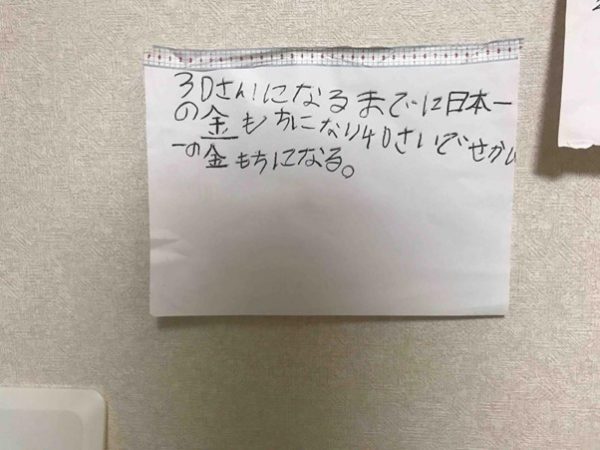 30さいになるまでに日本一
の金もちになり40さいでせかい
一の金もちになる。